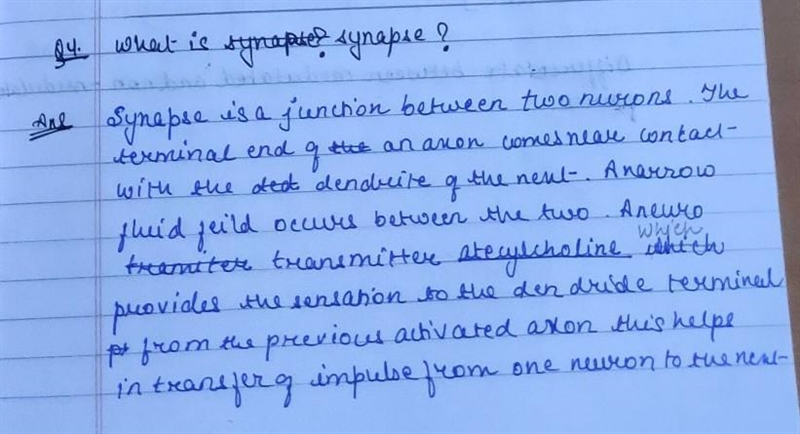 Q4. What is synapse? synapse?
Ans Synapse is a junction between two nurons. The
terminal end of the an axon comes near contact
with the dedt dendrite of the next. A narrow
fluid feild occurs between the two. A neuro
which
tramiter transmitter atecylcholine which
provides the sensation to the dendride terminal
pt from the previous activated axon this helps
in transfer of impulse from one neuron to the next